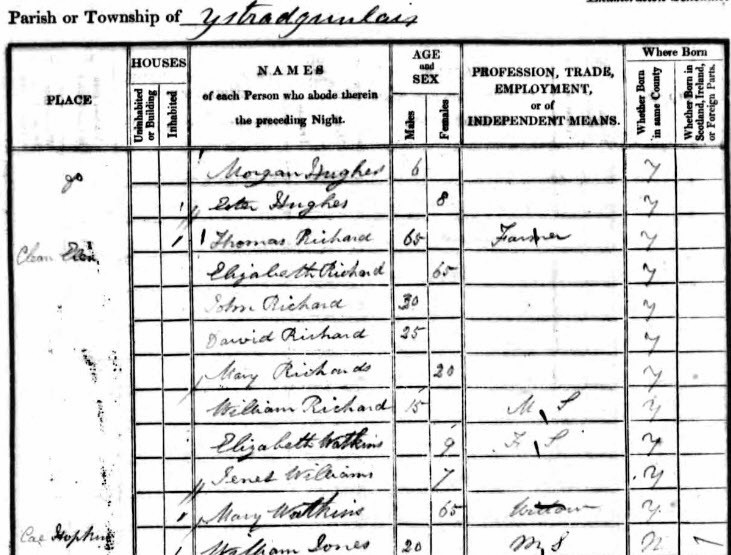 Parish or Township of Ystradgunlais
PLACE
HOUSES
Uninhabited or Building
Inhabited
NAMES
of each Person who abode therein
the preceding Night.
AGE
and
SEX
Males
Females
PROFESSION, TRADE,
EMPLOYMENT,
or of
INDEPENDENT MEANS.
Where Born
Whether Born in same County
Whether Born in Scotland, Ireland, or Foreign Parts.
do Morgan Hughes 6 y
1 Ester Hughes 8 y
1 Thomas Richard 65 Farmer y
Elizabeth Richard 65 y
John Richard 30 y
David Richard 25 y
Mary Richards 20 y
William Richard 15 M S y
Elizabeth Watkins 9 F S y
Jenet Williams 7 y
1 Mary Watkins 65 Widow y
Cae Hopkin 1 William Jones 20 M S N